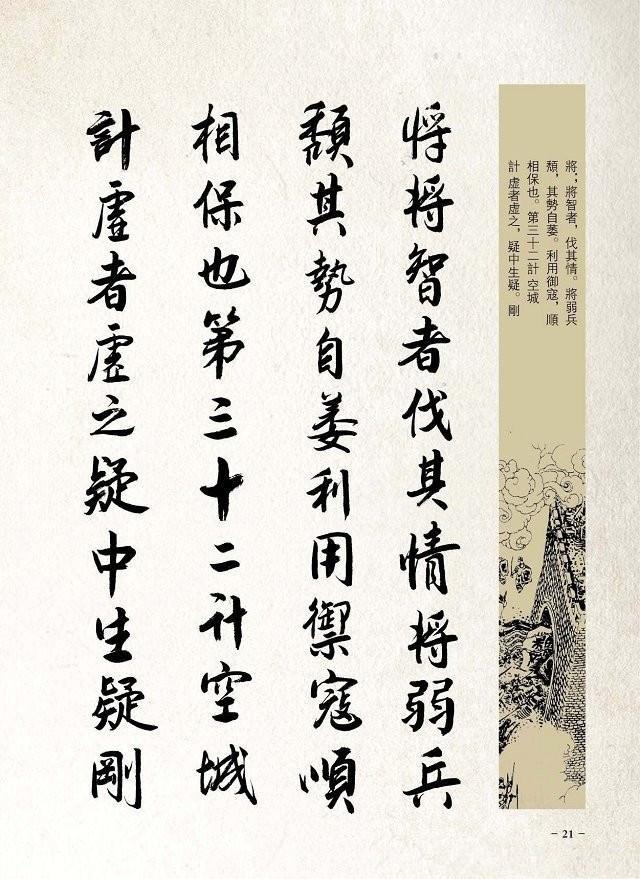 將;將智者,伐其情。將弱兵
頽,其勢自萎。利用御寇,順
相保也。第三十二計 空城
計 虛者虛之,疑中生疑。剛
将将智者伐其情将弱兵
頽其勢自萎利用禦寇順
相保也第三十二计空城
計虛者虛之疑中生疑剛
- 21 -